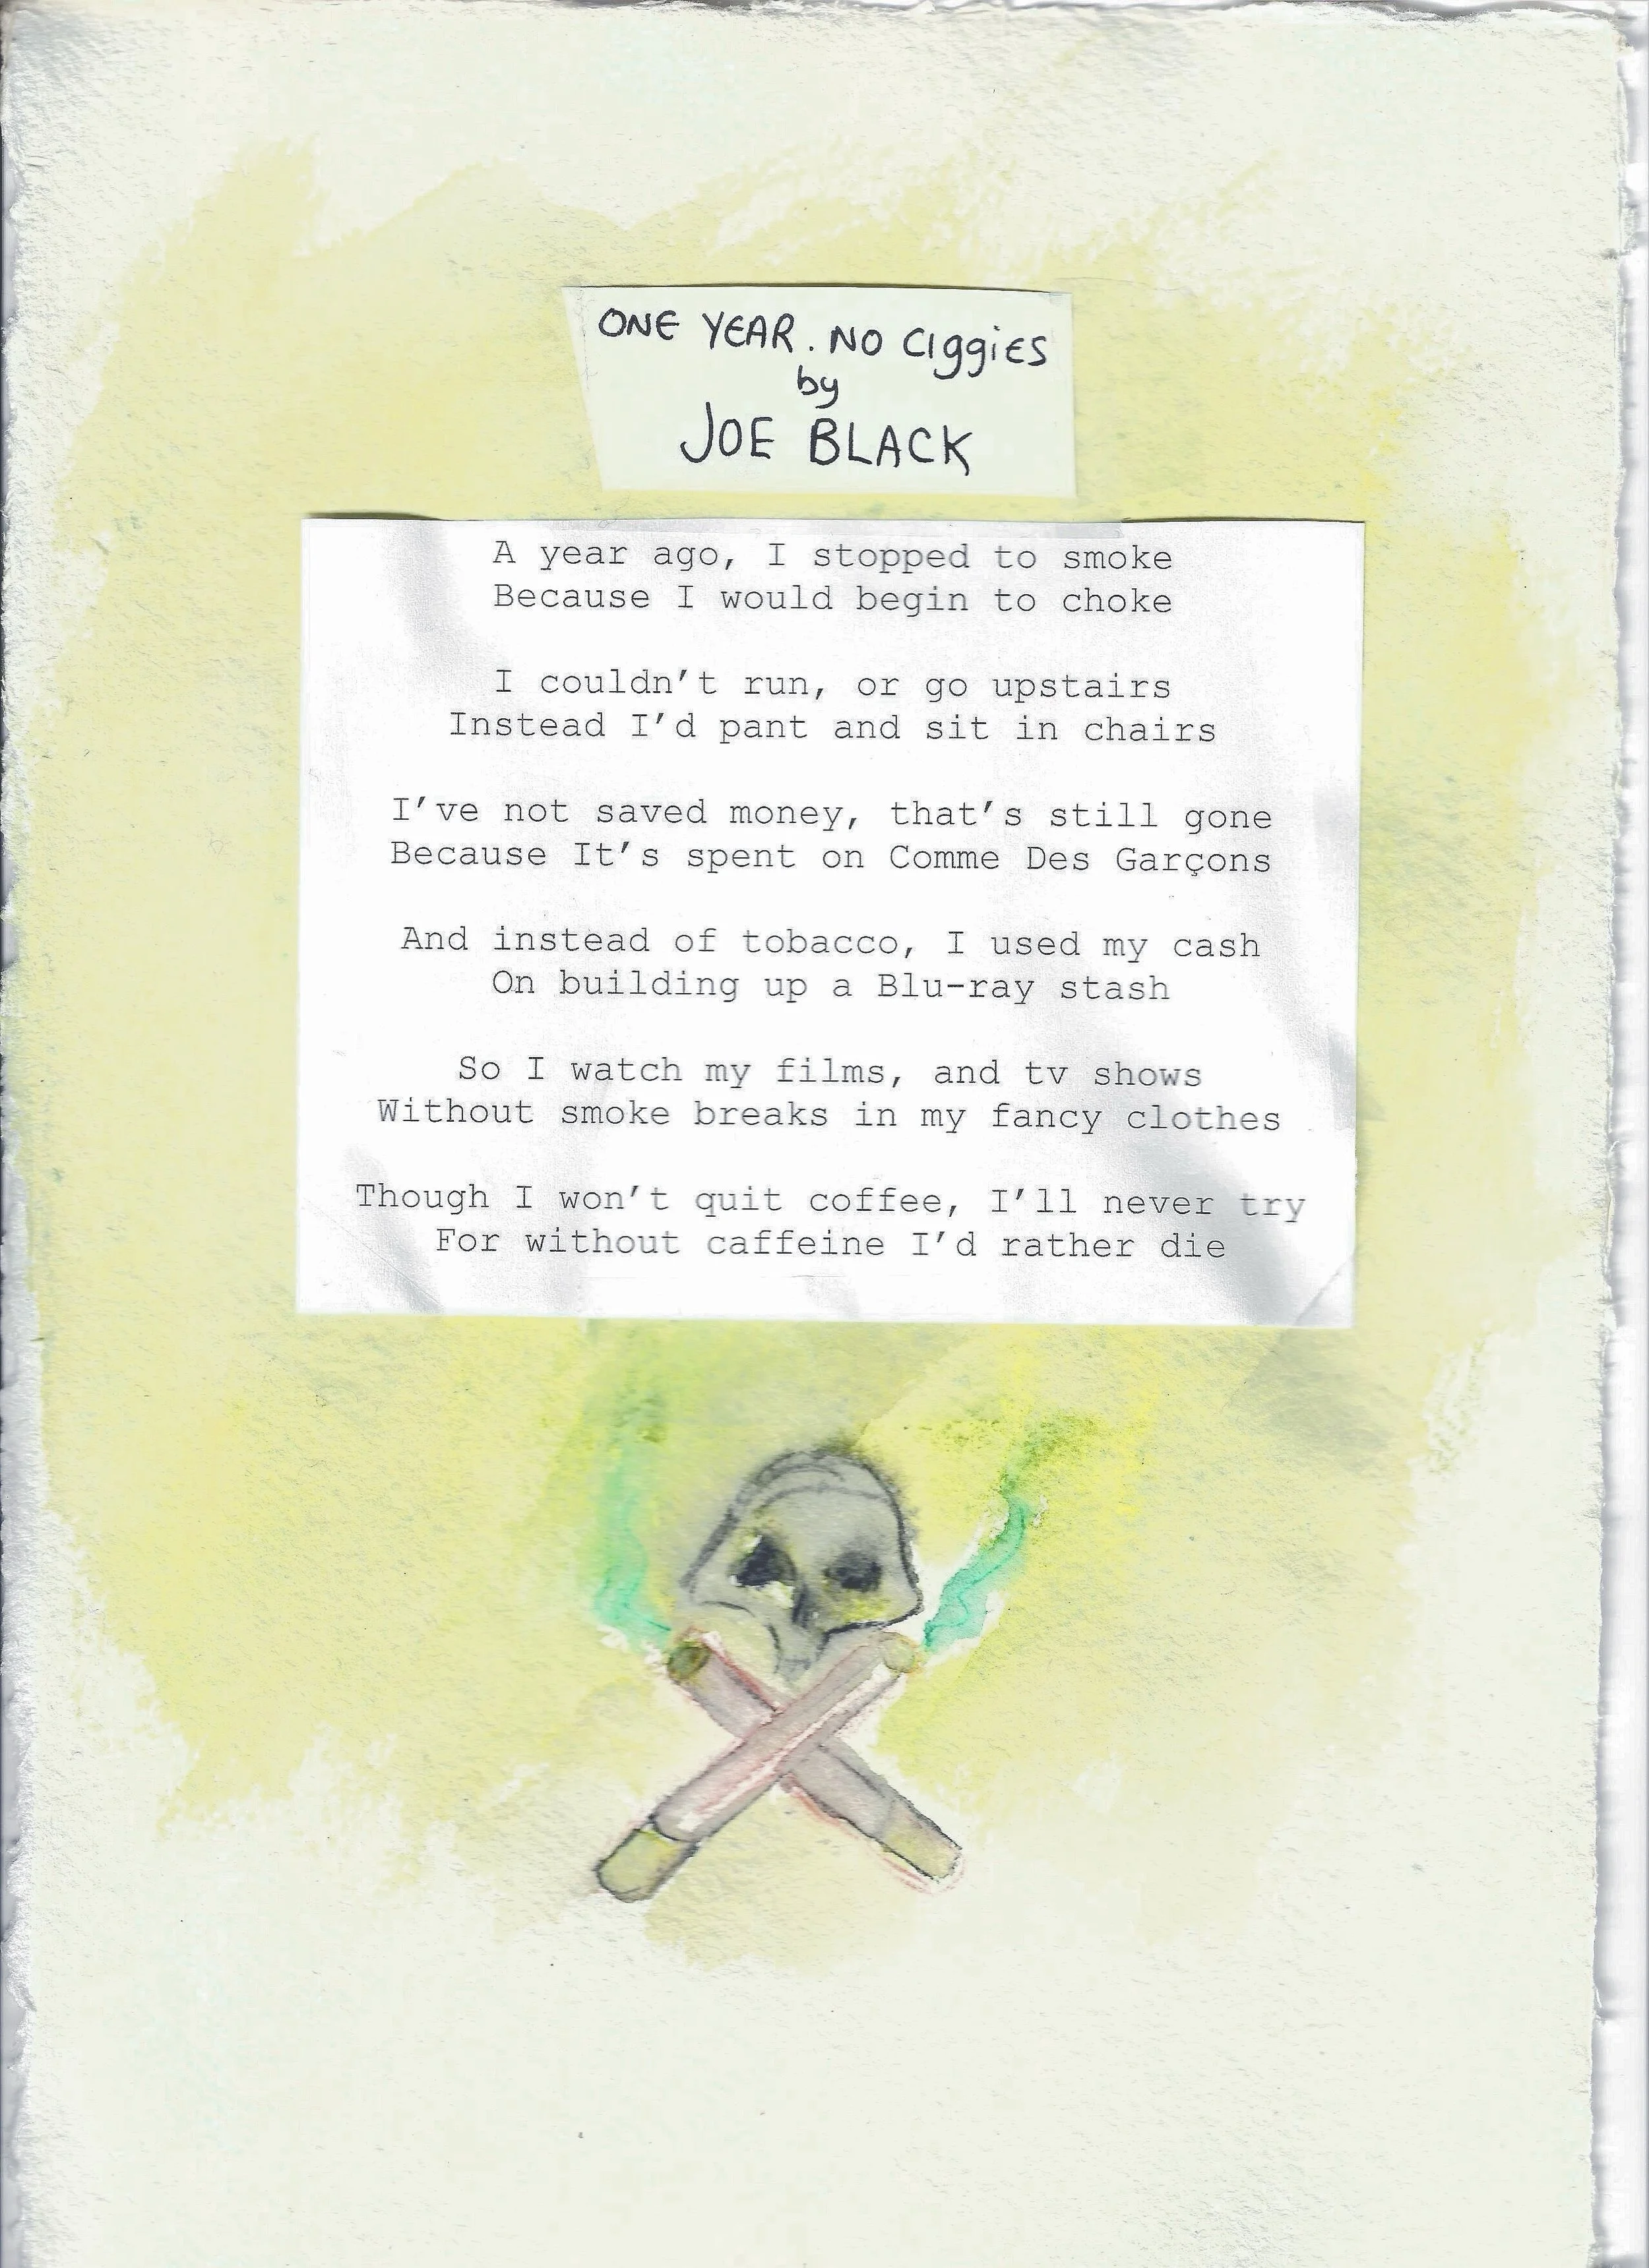 ONE YEAR. NO CIggIES
by
JOE BLACK
A year ago, I stopped to smoke
Because I would begin to choke
I couldn't run, or go upstairs
Instead I'd pant and sit in chairs
I've not saved money, that's still gone
Because It's spent on Comme Des Garçons
And instead of tobacco, I used my cash
On building up a Blu-ray stash
So I watch my films, and tv shows
Without smoke breaks in my fancy clothes
Though I won't quit coffee, I'll never try
For without caffeine I'd rather die